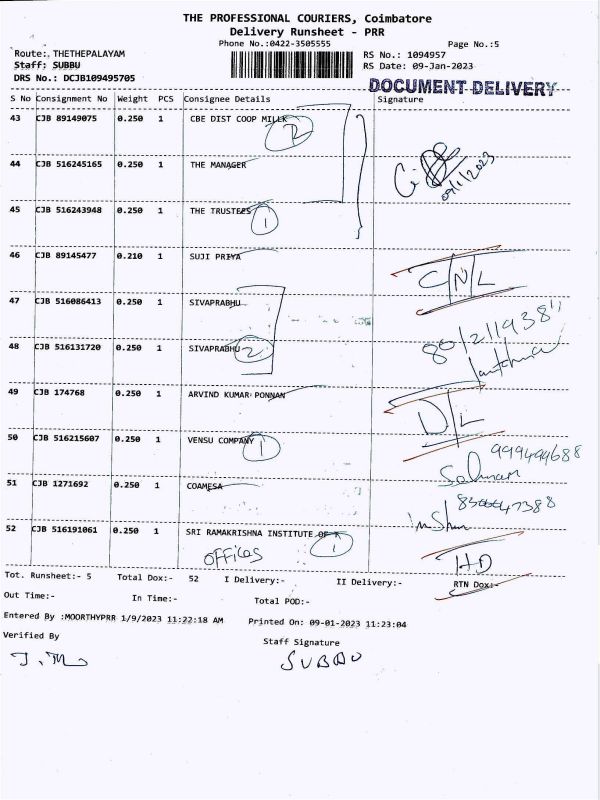 THE PROFESSIONAL COURIERS, Coimbatore
Delivery Runsheet - PRR
Phone No.:0422-3505555 Page No.:5
Route:. THETHEPALAYAM RS No.: 1094957
Staff: SUBBU RS Date: 09-Jan-2023
DRS No.: DCJB109495705 DOCUMENT DELIVERY
S No Consignment No Weight PCS Consignee Details Signature
43 CJB 89149075 0.250 1 CBE DIST COOP MILLK
2
44 CJB 516245165 0.250 1 THE MANAGER
09/1/2023
45 CJB 516243948 0.250 1 THE TRUSTEES 1
46 CJB 89145477 0.210 1 SUJI PRIYA
C/N/L
47 CJB 516086413 0.250 1 SIVAPRABHU
48 CJB 516131720 0.250 1 SIVAPRABHU 2
49 CJB 174768 0.250 1 ARVIND KUMAR PONNAN
D/L
50 CJB 516215607 0.250 1 VENSU COMPANY 1
999499688
Salman
51 CJB 1271692 0.250 1 COAMESA
52 CJB 516191061 0.250 1 SRI RAMAKRISHNA INSTITUTE OF
OFFICES 1
HD
Tot. Runsheet:- 5 Total Dox:- 52 I Delivery:- II Delivery:- RTN Dox:-
Out Time:- In Time:- Total POD:-
Entered By :MOORTHYPRR 1/9/2023 11:22:18 AM Printed On: 09-01-2023 11:23:04
Verified By Staff Signature
SUBBU